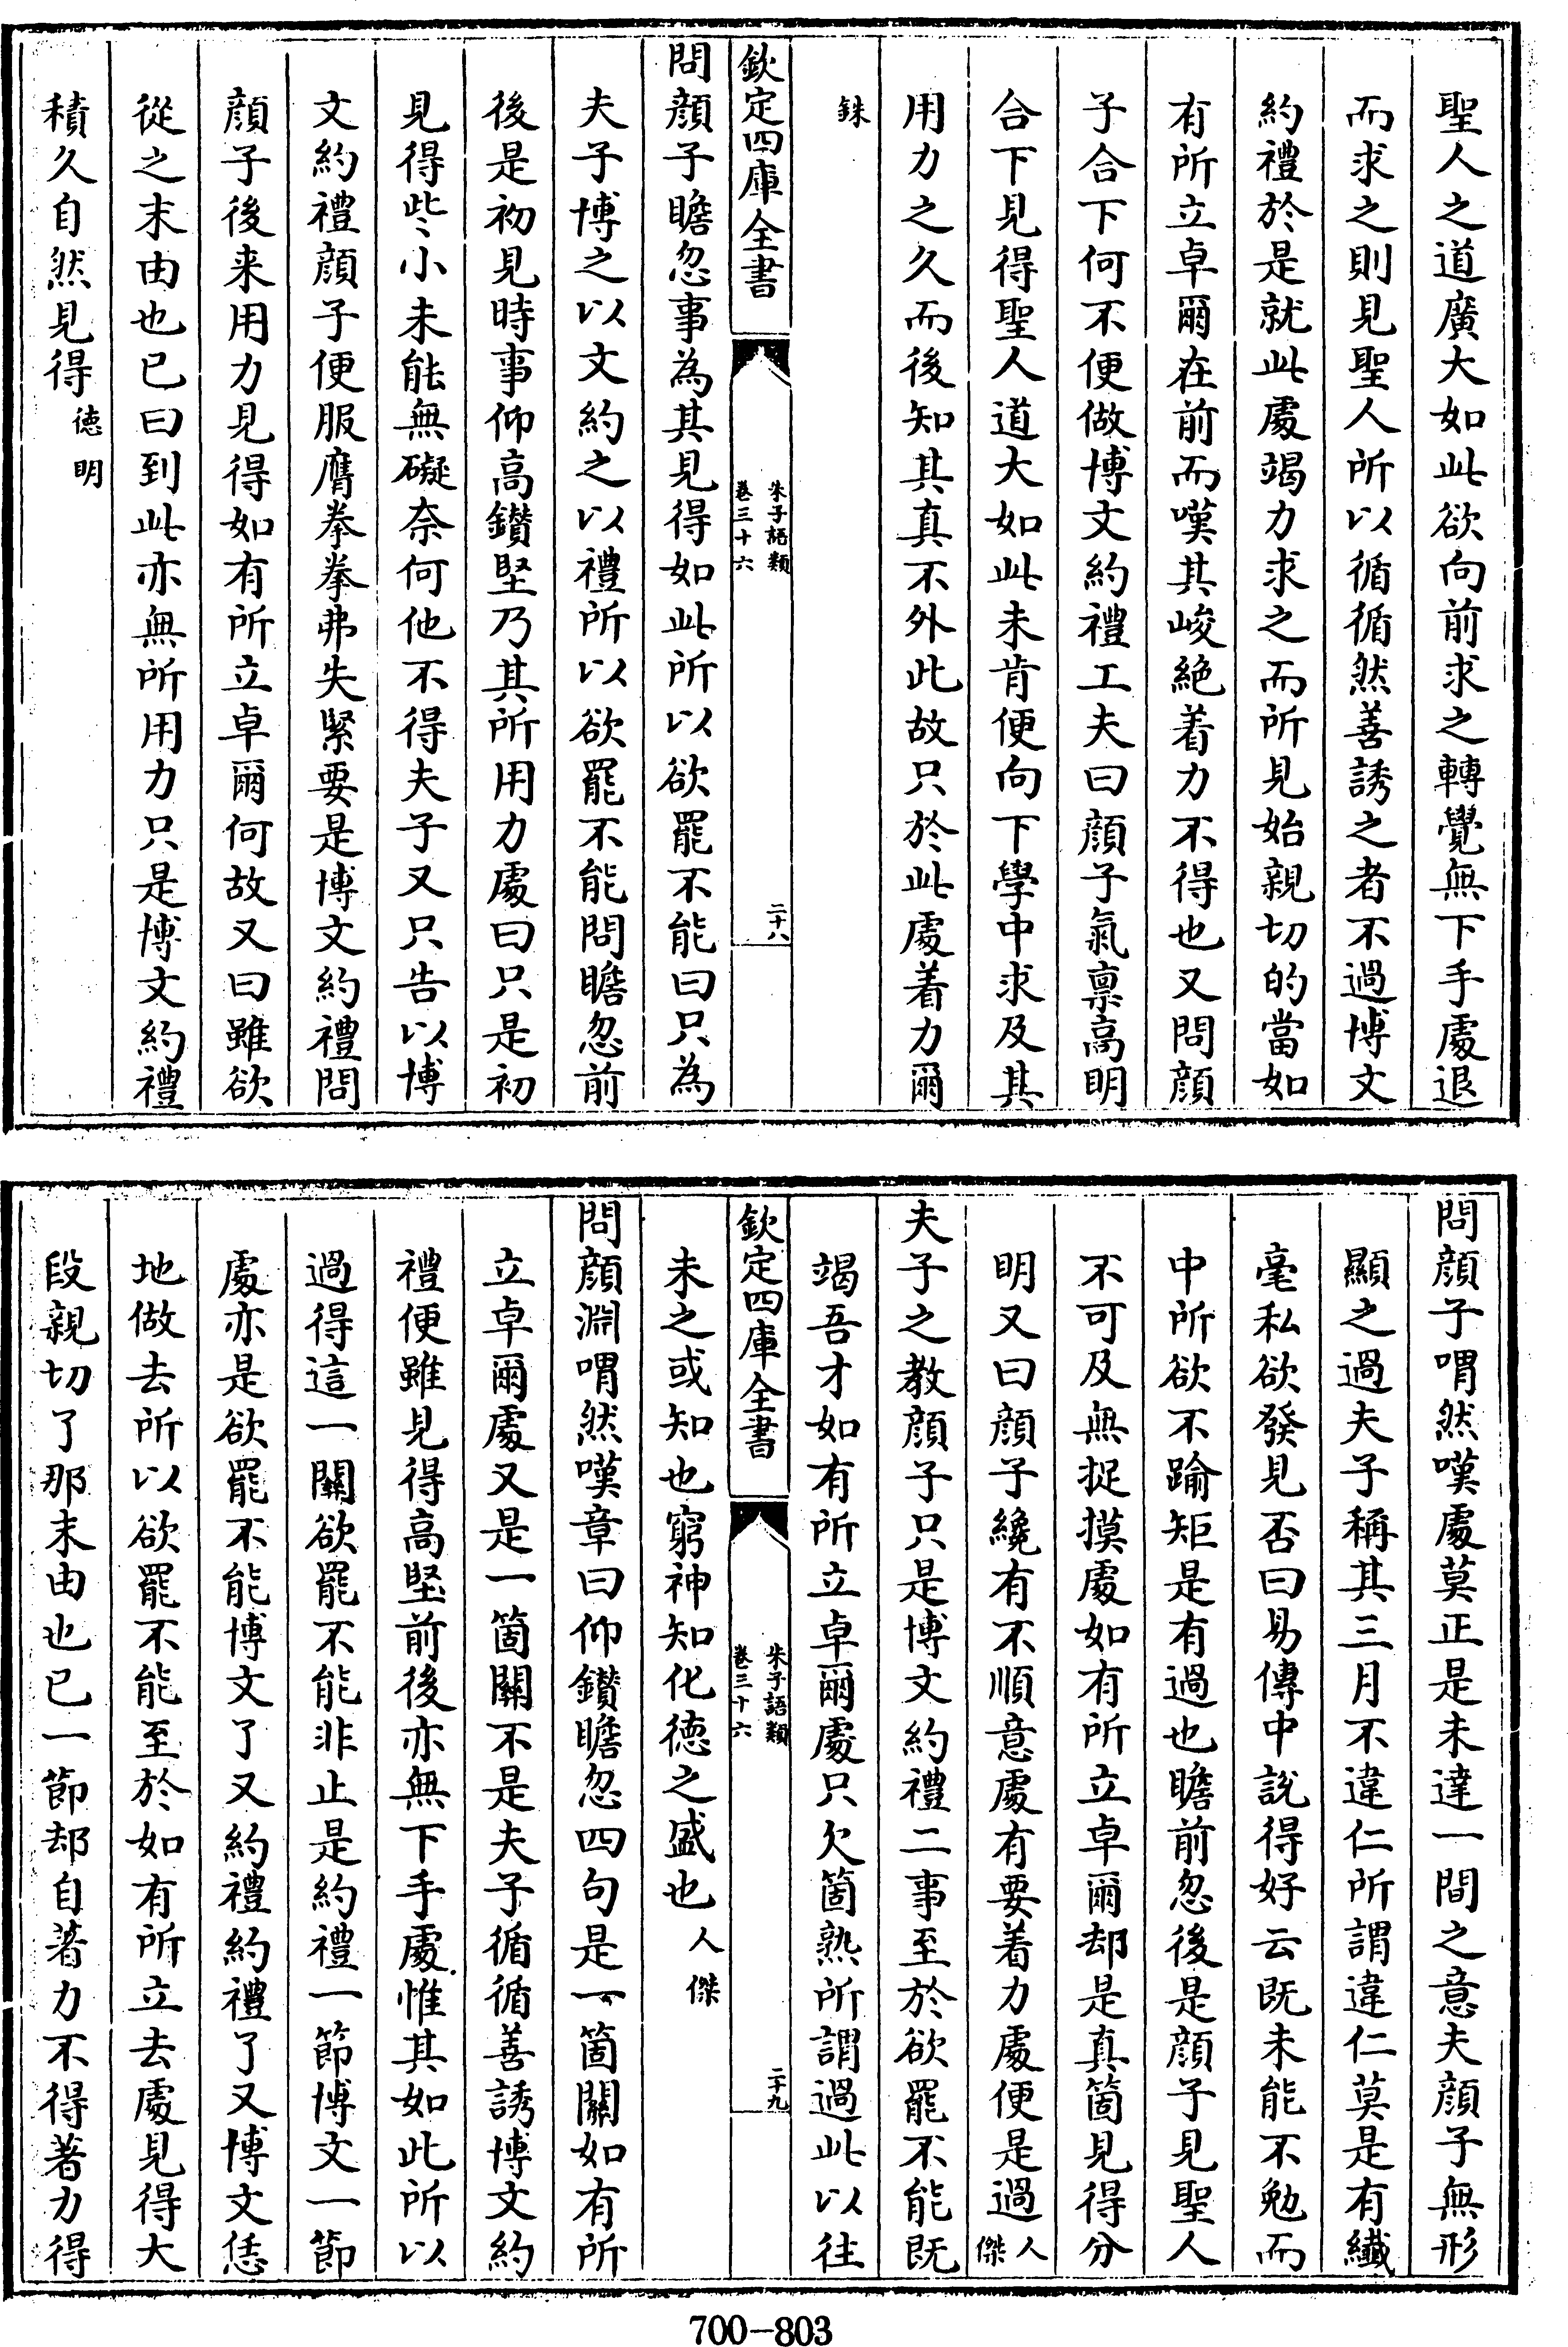 聖人之道廣大如此欲向前求之轉覺無下手處退
而求之則見聖人所以循循然善誘之者不過博文
約禮於是就此處竭力求之而所見始親切的當如
有所立卓爾在前而嘆其峻絶着力不得也又問顔
子合下何不便做博文約禮工夫曰顔子氣禀高明
合下見得聖人道大如此未肯便向下學中求及其
用力之久而後知其真不外此故只於此處着力爾
銖
欽定四庫全書
朱子語類
卷三十六
二十八
問顔子瞻忽事為其見得如此所以欲罷不能曰只為
夫子博之以文約之以禮所以欲罷不能問瞻忽前
後是初見時事仰高鑚堅乃其所用力處曰只是初
見得些小未能無礙奈何他不得夫子又只告以博
文約禮顔子便服膺拳拳弗失緊要是博文約禮問
顔子後来用力見得如有所立卓爾何故又曰雖欲
從之末由也已曰到此亦無所用力只是博文約禮
積久自然見得德明
問顔子喟然嘆處莫正是未達一間之意夫顔子無形
顯之過夫子稱其三月不違仁所謂違仁莫是有纎
毫私欲發見否曰易傳中說得好云既未能不勉而
中所欲不踰矩是有過也瞻前忽後是顔子見聖人
不可及無捉摸處如有所立卓爾却是真箇見得分
明又曰顔子纔有不順意處有要着力處便是過人傑
夫子之教顔子只是博文約禮二事至於欲罷不能既
竭吾才如有所立卓爾處只欠箇熟所謂過此以往
欽定四庫全書
朱子語類
卷三十六
二十九
未之或知也窮神知化德之盛也人傑
問顔淵喟然嘆章曰仰鑚瞻忽四句是一箇關如有所
立卓爾處又是一箇關不是夫子循循善誘博文約
禮便雖見得高堅前後亦無下手處惟其如此所以
過得這一關欲罷不能非止是約禮一節博文一節
處亦是欲罷不能博文了又約禮約禮了又博文恁
地做去所以欲罷不能至於如有所立去處見得大
段親切了那末由也已一節却自著力不得著力得
700-803